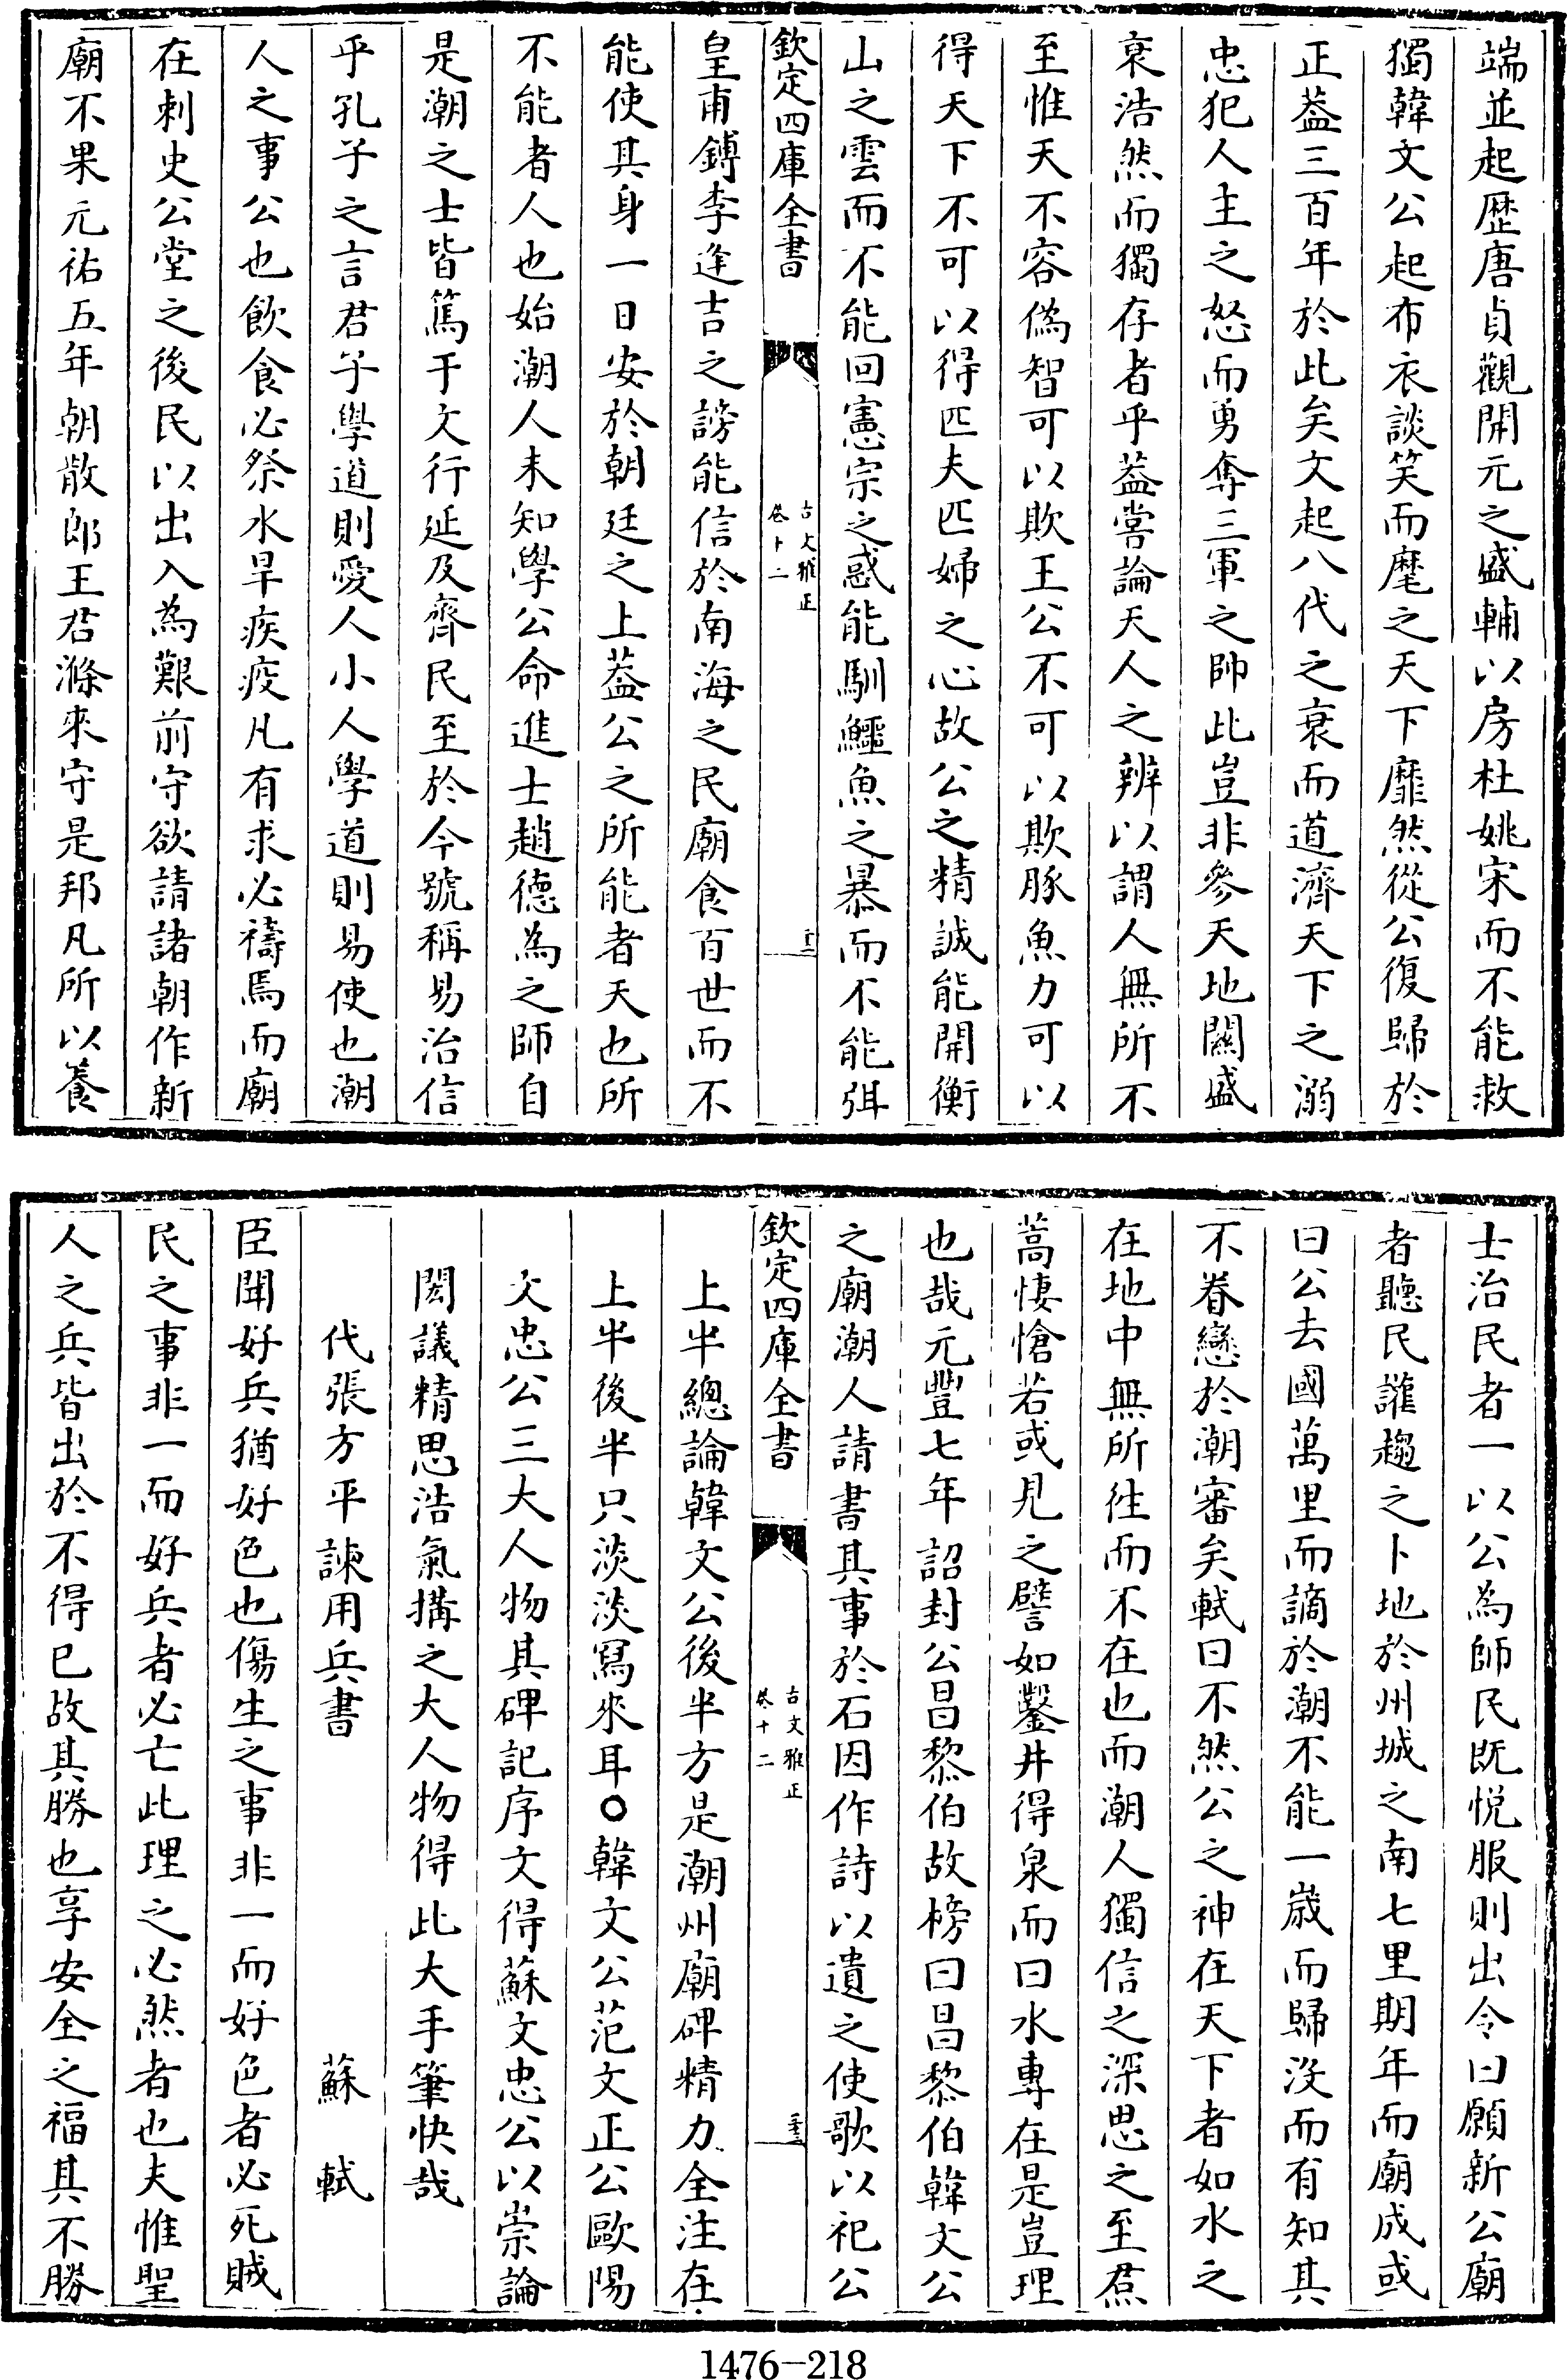 端並起歴唐貞觀開元之盛輔以房杜姚宋而不能救
獨韓文公起布衣談笑而麾之天下靡然從公復歸於
正葢三百年於此矣文起八代之衰而道濟天下之溺
忠犯人主之怒而勇奪三軍之帥此豈非參天地闗盛
衰浩然而獨存者乎葢嘗論天人之辨以謂人無所不
至惟天不容偽智可以欺王公不可以欺豚魚力可以
得天下不可以得匹夫匹婦之心故公之精誠能開衡
山之雲而不能回憲宗之惑能馴鱷魚之暴而不能弭
欽定四庫全書
古文雅正
卷十二
皇甫鎛李逢吉之謗能信於南海之民廟食百世而不
能使其身一日安於朝廷之上葢公之所能者天也所
不能者人也始潮人未知學公命進士趙德為之師自
是潮之士皆篤于文行延及齊民至於今號稱易治信
乎孔子之言君子學道則愛人小人學道則易使也潮
人之事公也飲食必祭水旱疾疫凡有求必禱焉而廟
在刺史公堂之後民以出入為艱前守欲請諸朝作新
廟不果元祐五年朝散郎王君滌來守是邦凡所以養
士治民者一以公為師民既悦服則出令曰願新公廟
者聽民讙趨之卜地於州城之南七里期年而廟成或
曰公去國萬里而謫於潮不能一歲而歸沒而有知其
不眷戀於潮審矣軾曰不然公之神在天下者如水之
在地中無所徃而不在也而潮人獨信之深思之至焄
蒿悽愴若或見之譬如鑿井得泉而曰水專在是豈理
也哉元豐七年詔封公昌黎伯故榜曰昌黎伯韓文公
之廟潮人請書其事於石因作詩以遺之使歌以祀公
欽定四庫全書
古文雅正
卷十二
上半總論韓文公後半方是潮州廟碑精力全注在
上半後半只淡淡寫來耳○韓文公范文正公歐陽
文忠公三大人物其碑記序文得蘇文忠公以崇論
閎議精思浩氣搆之大人物得此大手筆快哉
代張方平諫用兵書　蘇軾
臣聞好兵猶好色也傷生之事非一而好色者必死賊
民之事非一而好兵者必亡此理之必然者也夫惟聖
人之兵皆出於不得已故其勝也享安全之福其不勝
1476-218